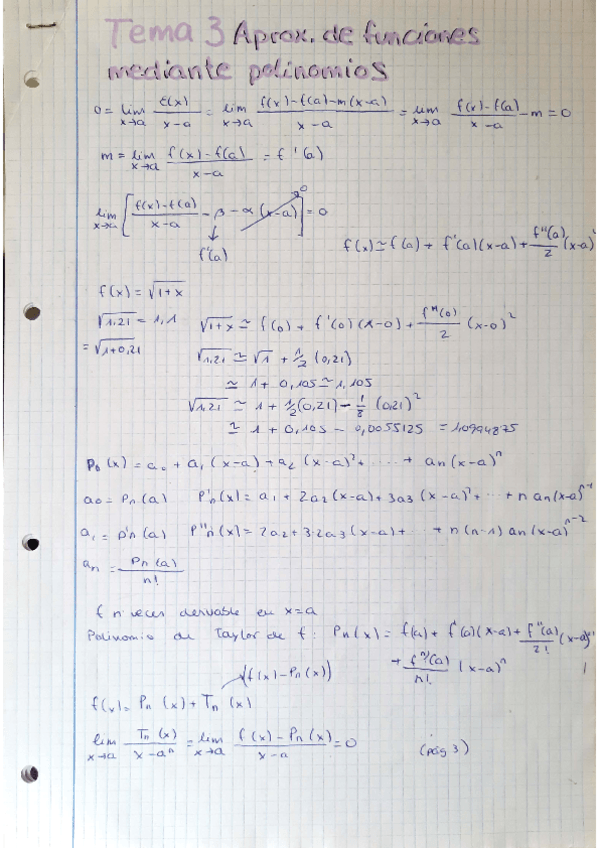 Tema 3 Aprox. de funciones
mediante polinomios
0 = lim x→a ε(x)/(x-a) = lim x→a (f(x)-f(a)-m(x-a))/(x-a) = lim x→a (f(x)-f(a))/(x-a) - m = 0
m = lim x→a (f(x)-f(a))/(x-a) = f'(a)
lim x→a [(f(x)-f(a))/(x-a) - β - α(x-a)] = 0
0
f'(a)
f(x) ≃ f(a) + f'(a)(x-a) + f''(a)/2 (x-a)²
f(x) = √1+x
√1,21 = 1,1 √1+x ≃ f(0) + f'(0)(x-0) + f''(0)/2 (x-0)²
= √1+0,21 √1,21 ≃ √1 + 1/2 (0,21)
≃ 1 + 0,105 ≃ 1,105
√1,21 ≃ 1 + 1/2(0,21) - 1/8 (0,21)²
≃ 1 + 0,105 - 0,0055125 = 1,0994875
P₀(x) = a₀ + a₁(x-a) + a₂(x-a)² + ..... + an(x-a)ⁿ
a₀ = Pn(a) P'n(x) = a₁ + 2a₂(x-a) + 3a₃(x-a)² + ... + n an(x-a)ⁿ⁻¹
a₁ = p'n(a) P''n(x) = 2a₂ + 3·2a₃(x-a) + ... + n(n-1) an(x-a)ⁿ⁻²
an = Pn(a)/n!
f n veces derivable en x=a
Polinomio de Taylor de f: Pn(x) = f(a) + f'(a)(x-a) + f''(a)/2! (x-a)²
+ fⁿ(a)/n! (x-a)ⁿ
(f(x)-Pn(x))
f(x) = Pn(x) + Tn(x)
lim x→a Tn(x)/(x-aⁿ) = lim x→a (f(x)-Pn(x))/(x-a) = 0 (pág 3)